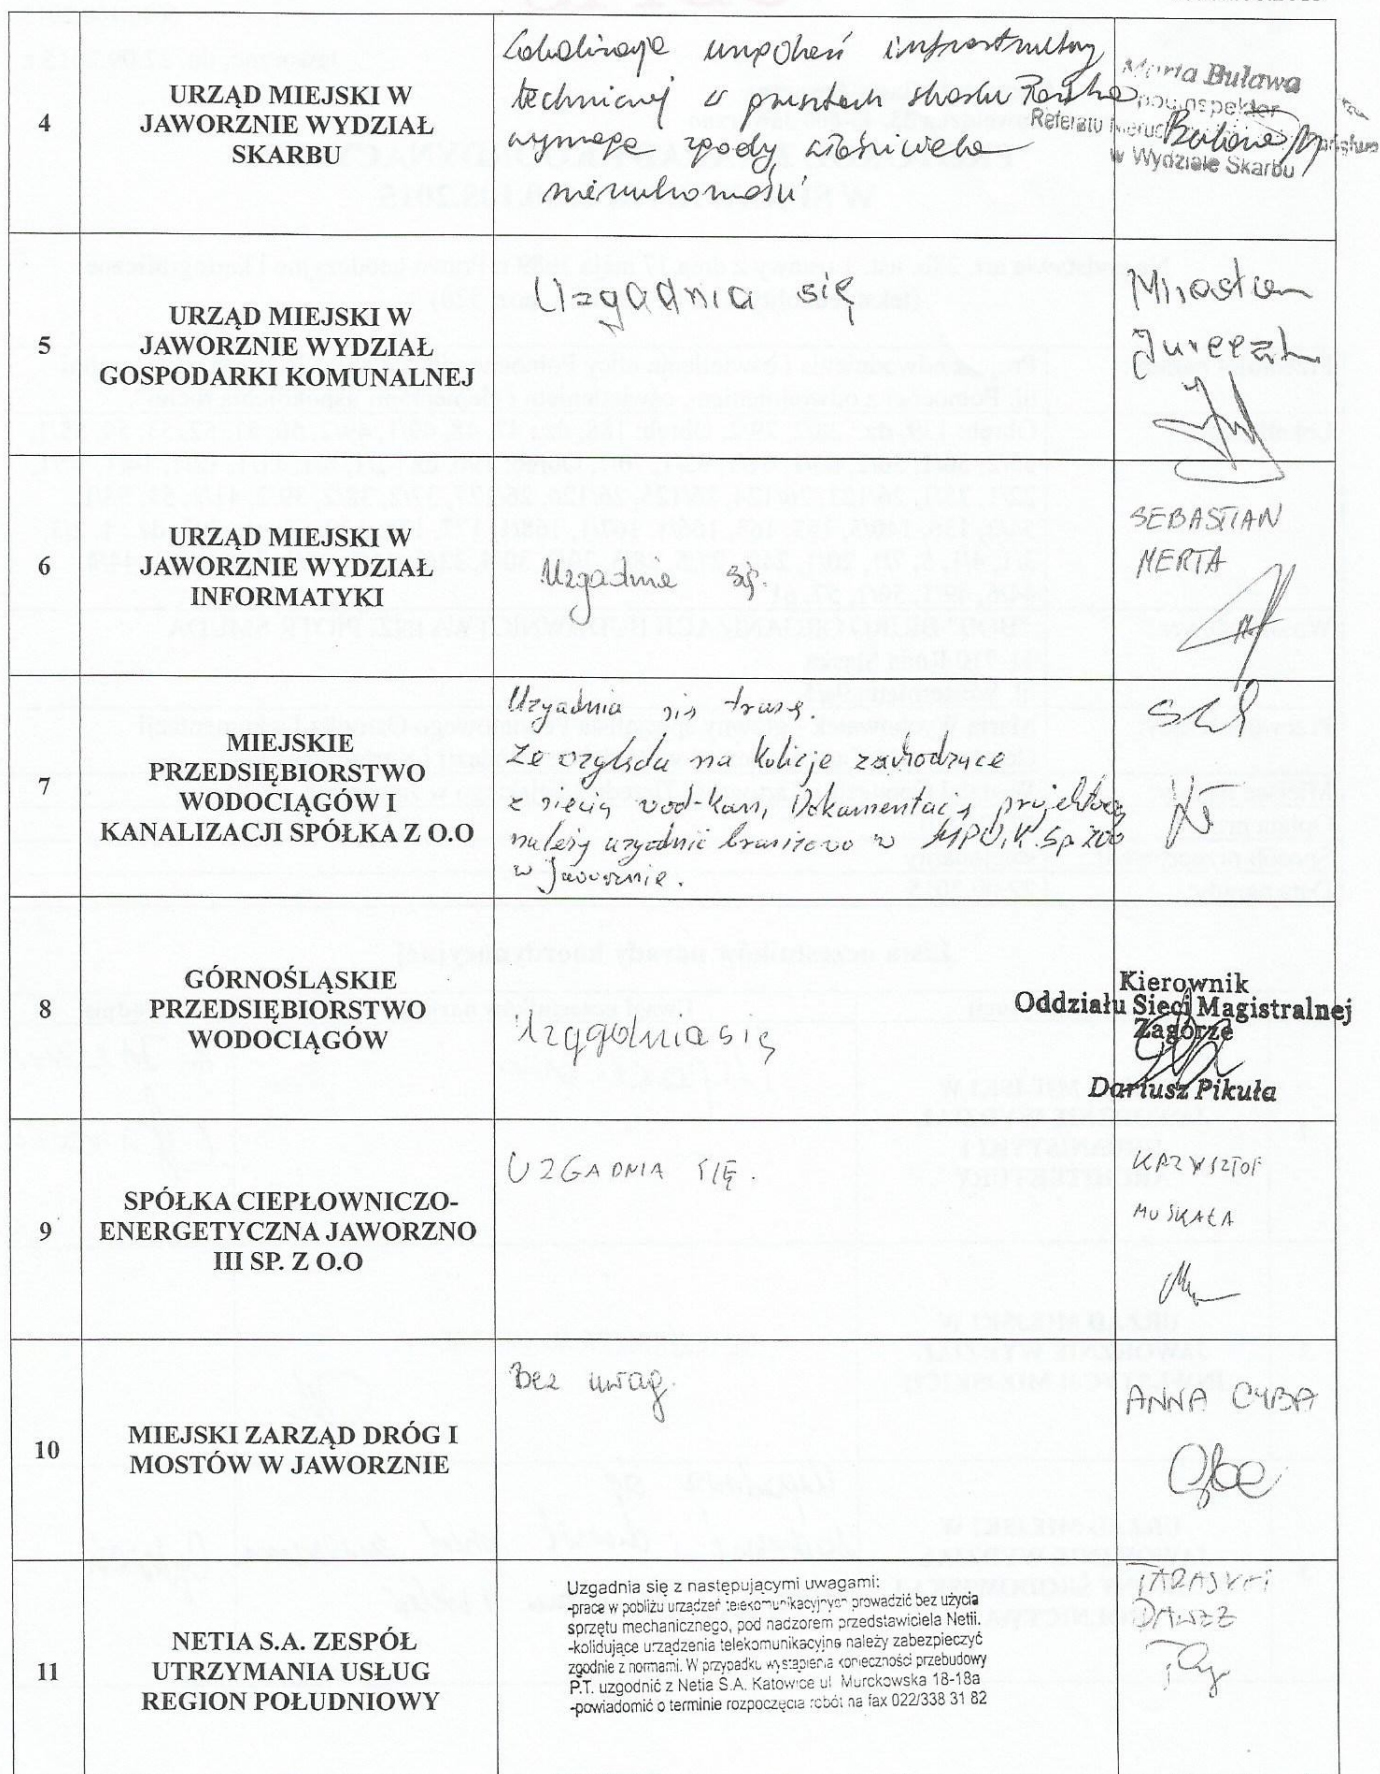 4
URZĄD MIEJSKI W
JAWORZNIE WYDZIAŁ
SKARBU
Lokalizacja urządzeń infrastruktury
technicznej w
wymaga zgody właściciela
nieruchomości
Marta Buława
podinspektor
Referatu
w Wydziale Skarbu
5
URZĄD MIEJSKI W
JAWORZNIE WYDZIAŁ
GOSPODARKI KOMUNALNEJ
Uzgadnia się
Mirosław
Jureczko
6
URZĄD MIEJSKI W
JAWORZNIE WYDZIAŁ
INFORMATYKI
Uzgadnia się.
SEBASTIAN
MERTA
7
MIEJSKIE
PRZEDSIĘBIORSTWO
WODOCIĄGÓW I
KANALIZACJI SPÓŁKA Z O.O
Uzgadnia się trasę.
Ze względu na kolizje zachodzące
z siecią wod-kan, Dokumentację projektową
należy uzgodnić branżowo w MPWiK Sp. zoo
w Jaworznie.
8
GÓRNOŚLĄSKIE
PRZEDSIĘBIORSTWO
WODOCIĄGÓW
Uzgadnia się
Kierownik
Oddziału Sieci Magistralnej
Zagórze
Dariusz Pikuła
9
SPÓŁKA CIEPŁOWNICZO-
ENERGETYCZNA JAWORZNO
III SP. Z O.O
UZGADNIA SIĘ.
KRZYSZTOF
MUSKAŁA
10
MIEJSKI ZARZĄD DRÓG I
MOSTÓW W JAWORZNIE
Bez uwag.
ANNA CYBA
11
NETIA S.A. ZESPÓŁ
UTRZYMANIA USŁUG
REGION POŁUDNIOWY
Uzgadnia się z następującymi uwagami:
-prace w pobliżu urządzeń telekomunikacyjnych prowadzić bez użycia
sprzętu mechanicznego, pod nadzorem przedstawiciela Netii.
-kolidujące urządzenia telekomunikacyjne należy zabezpieczyć
zgodnie z normami. W przypadku wystąpienia konieczności przebudowy
P.T. uzgodnić z Netia S.A. Katowice ul. Murckowska 18-18a
-powiadomić o terminie rozpoczęcia robót na fax 022/338 31 82